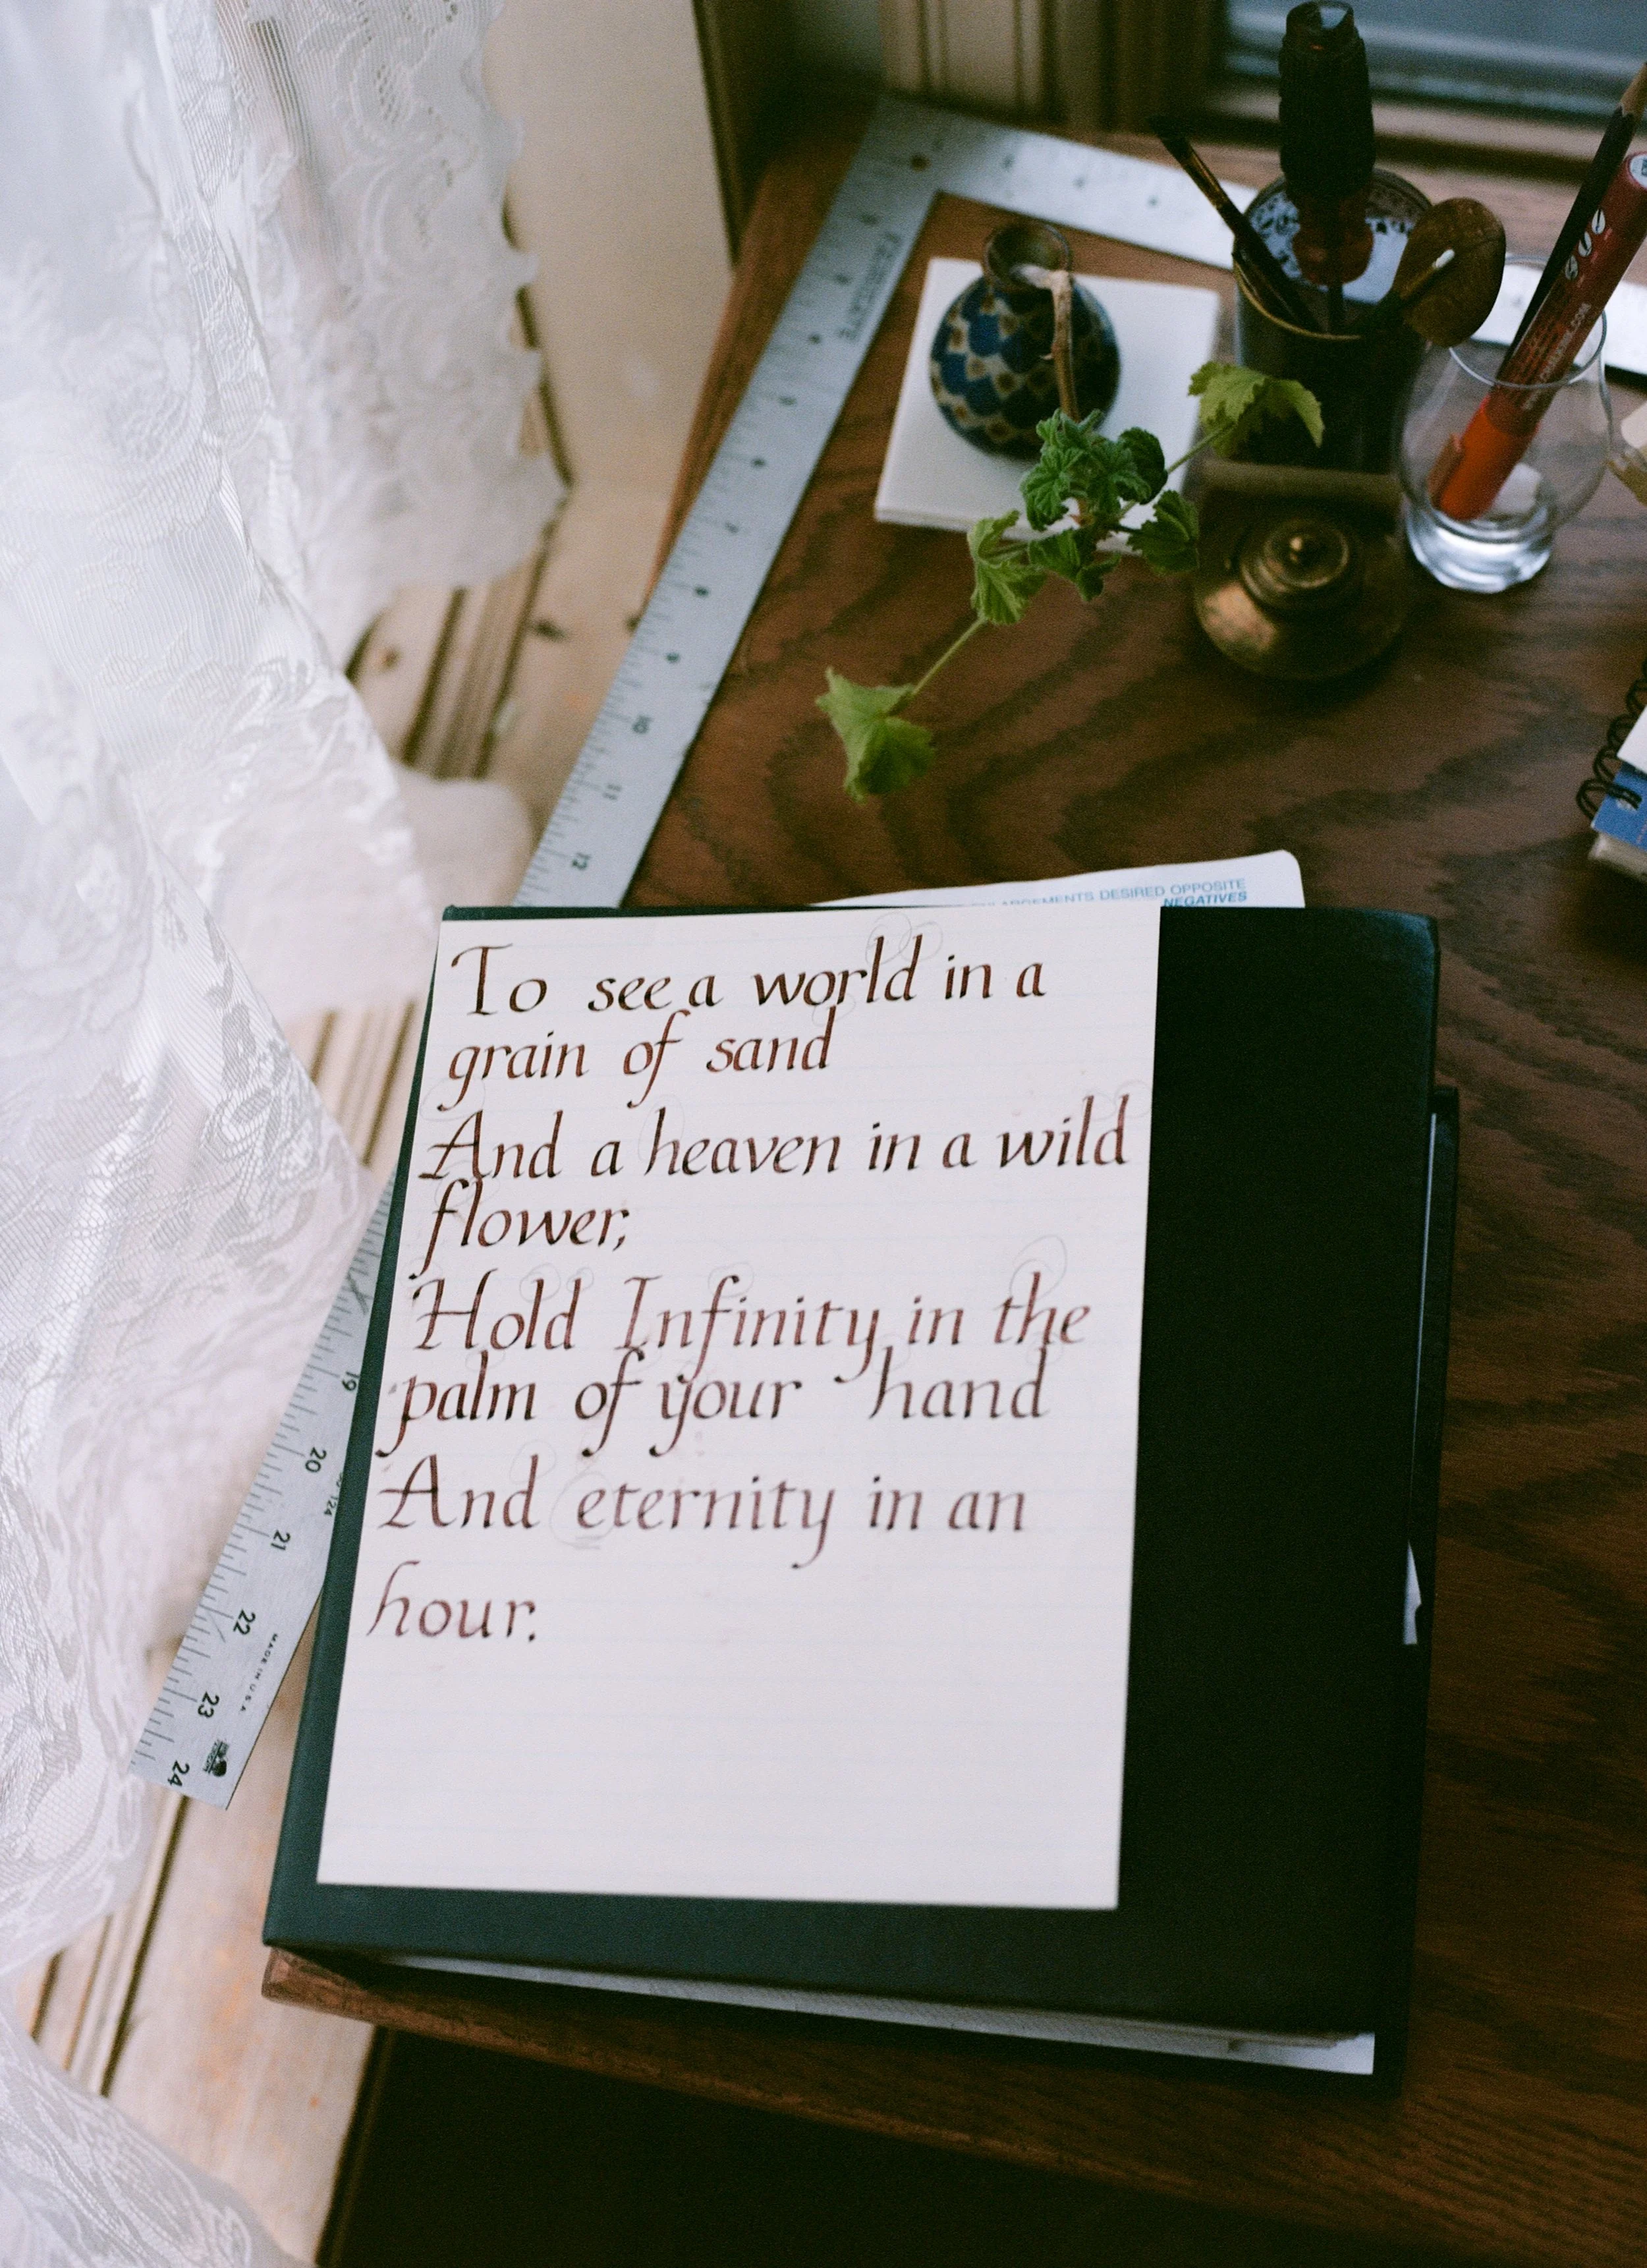 To see a world in a
grain of sand
And a heaven in a wild
flower;
Hold Infinity in the
palm of your hand
And eternity in an
hour.
ENLARGEMENTS DESIRED OPPOSITE
NEGATIVES
7
8
9
10
11
12
19
20
21
22
23
24
MADE IN U.S.A.